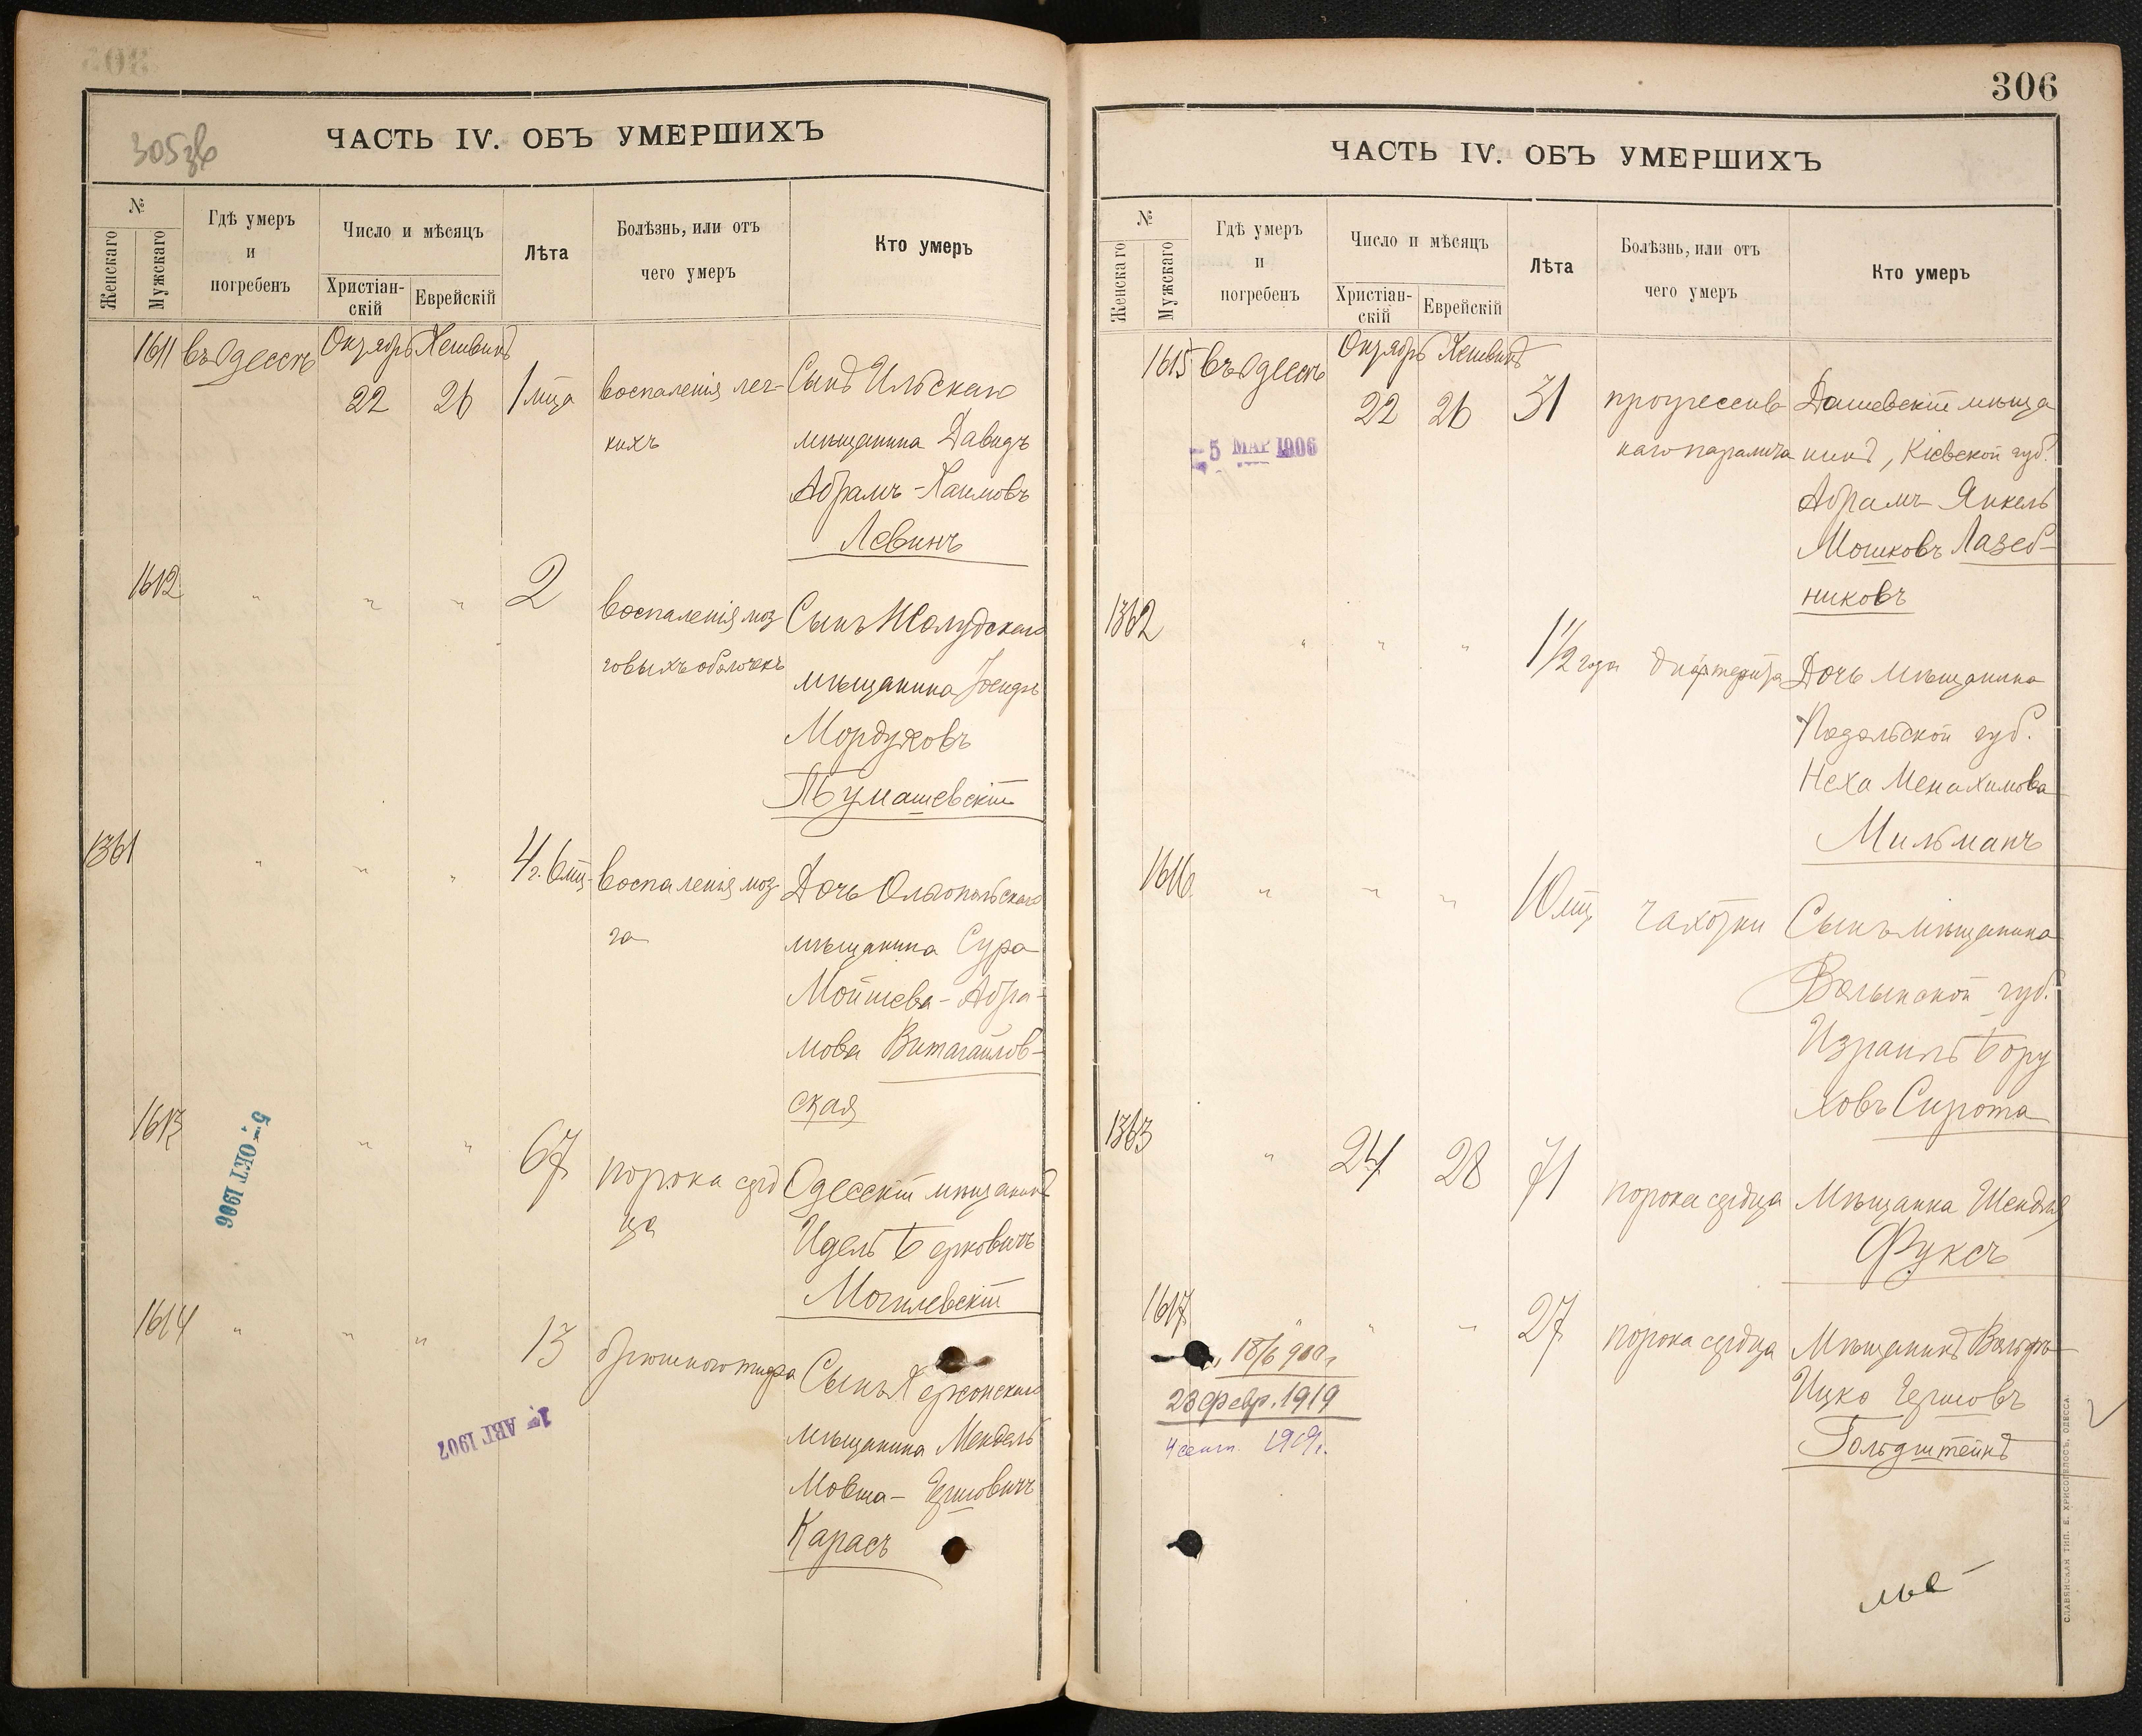 305зв
ЧАСТЬ IV. ОБЪ УМЕРШИХЪ
№
Женскаго
Мужскаго
Гдѣ умеръ
и
погребенъ
Число и мѣсяцъ
Христіан-
скій
Еврейскій
Лѣта
Болѣзнь, или отъ
чего умеръ
Кто умеръ
1611 въ Одессѣ Октябрь Хешвинъ
22 26 1 мца воспаленія лег- Сынъ Ильскаго
кихъ мѣщанина Давидъ
Абрамъ-Хаимовъ
Левинъ
1612 " " " 2 воспаленія моз Сынъ Жолудскаго
говыхъ оболочекъ мѣщанина
Мордуховъ
Тумашевскій
1361 " " " 4 г. 6 мц. воспаленія моз Дочь Ольгопольскаго
га мѣщанина Сура
Мойшева-Абра-
мова
ская
1613 " " 67 порока серд Одесскій мѣщанинъ
ца Идель Берковичъ
Могилевскій
5 ОКТ 1906
1614 " " " 13 брюшного тифа Сынъ Херсонскаго
мѣщанина Мендель
Мовша-Гершовичъ
Карасъ
1 АВГ 1907
306
ЧАСТЬ IV. ОБЪ УМЕРШИХЪ
№
Женскаго
Мужскаго
Гдѣ умеръ
и
погребенъ
Число и мѣсяцъ
Христіан-
скій
Еврейскій
Лѣта
Болѣзнь, или отъ
чего умеръ
Кто умеръ
1615 въ Одессѣ Октябрь Хешвинъ
22 26 31 прогрессив Дашевскій мѣща
5 МАР 1906
наго паралича нинъ, Кіевской губ.
Абрамъ-Янкель
Мошковъ Лазеб-
никовъ
1362 " " " 1 1/2 года дифтерита Дочь мѣщанина
Подольской губ.
Неха Менахимова
Мильманъ
1616 " " " 10 мц чахотки Сынъ мѣщанина
Волынской губ.
Израиль Бору
ховъ Сирота
1363 " 24 28 71 порока сердца Мѣщанка Шендля
Фуксъ
1617 " " " 27 порока сердца Мѣщанинъ Вольфъ-
18/6 900г
Ицко Гершовъ
23 февр. 1919
Гольдштейнъ
4 сент. 1919г.
СЛАВЯНСКАЯ ТИП. Е. ХРИСОГЕЛОСЪ, ОДЕССА.